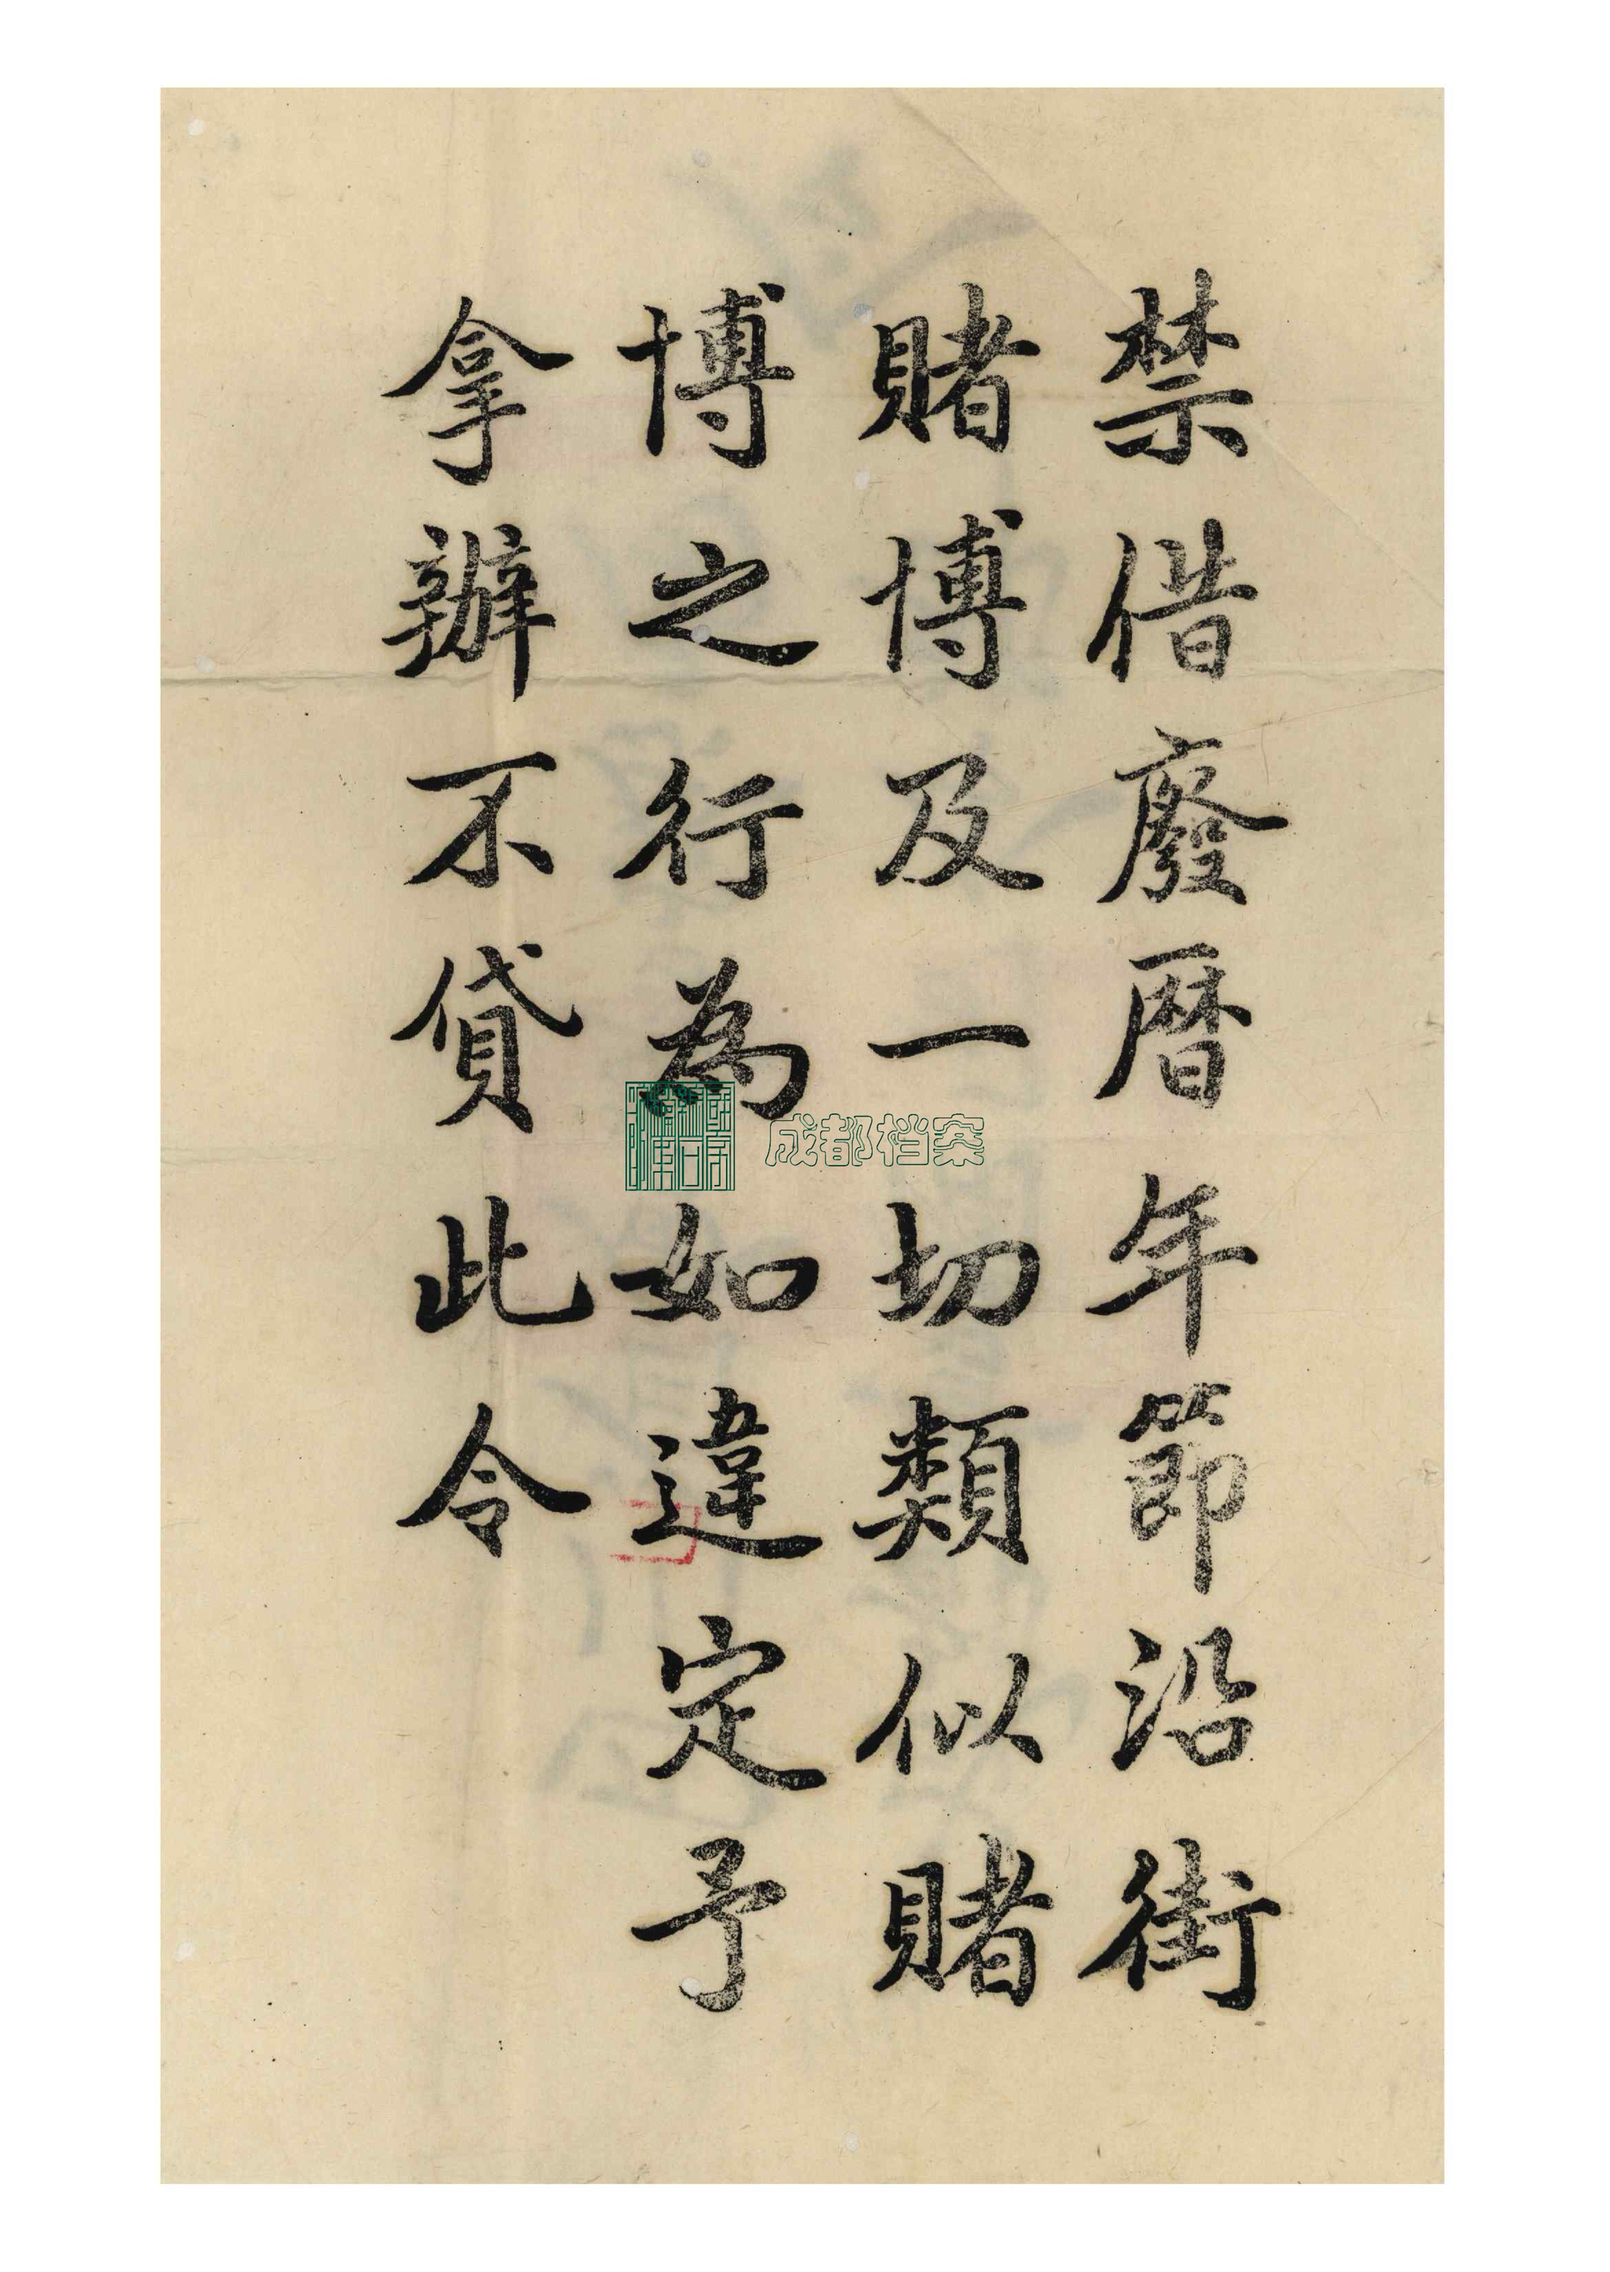 禁借廢曆年節沿街
賭博及一切類似賭
博之行為如違定予
拿辦不貸此令
成都档案